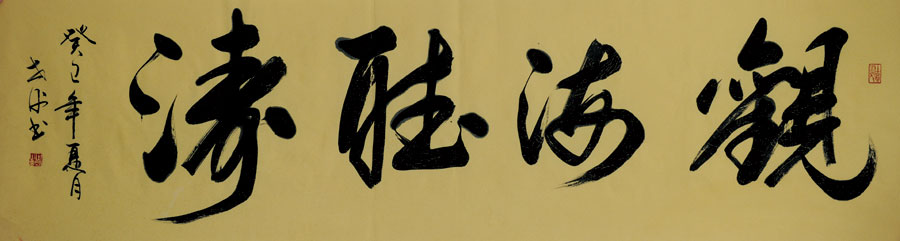 觀海聽濤
癸巳年夏月
书